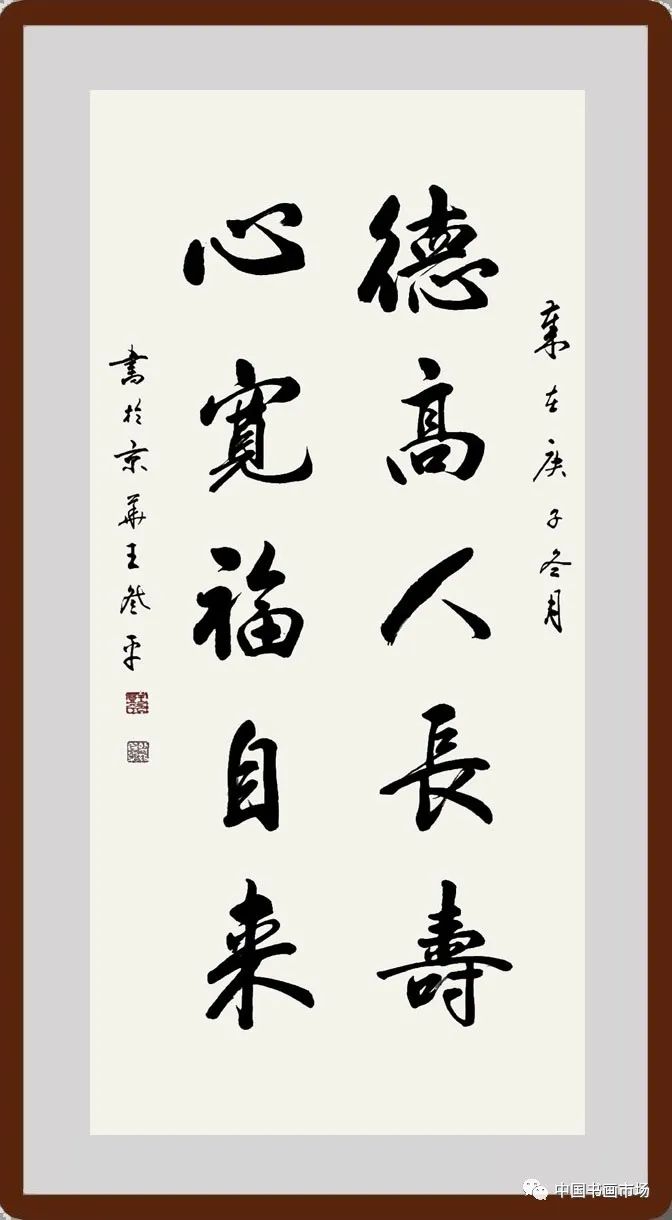 歲在庚子冬月
德高人長壽
心寬福自来
書於京華王叁平
中国书画市场